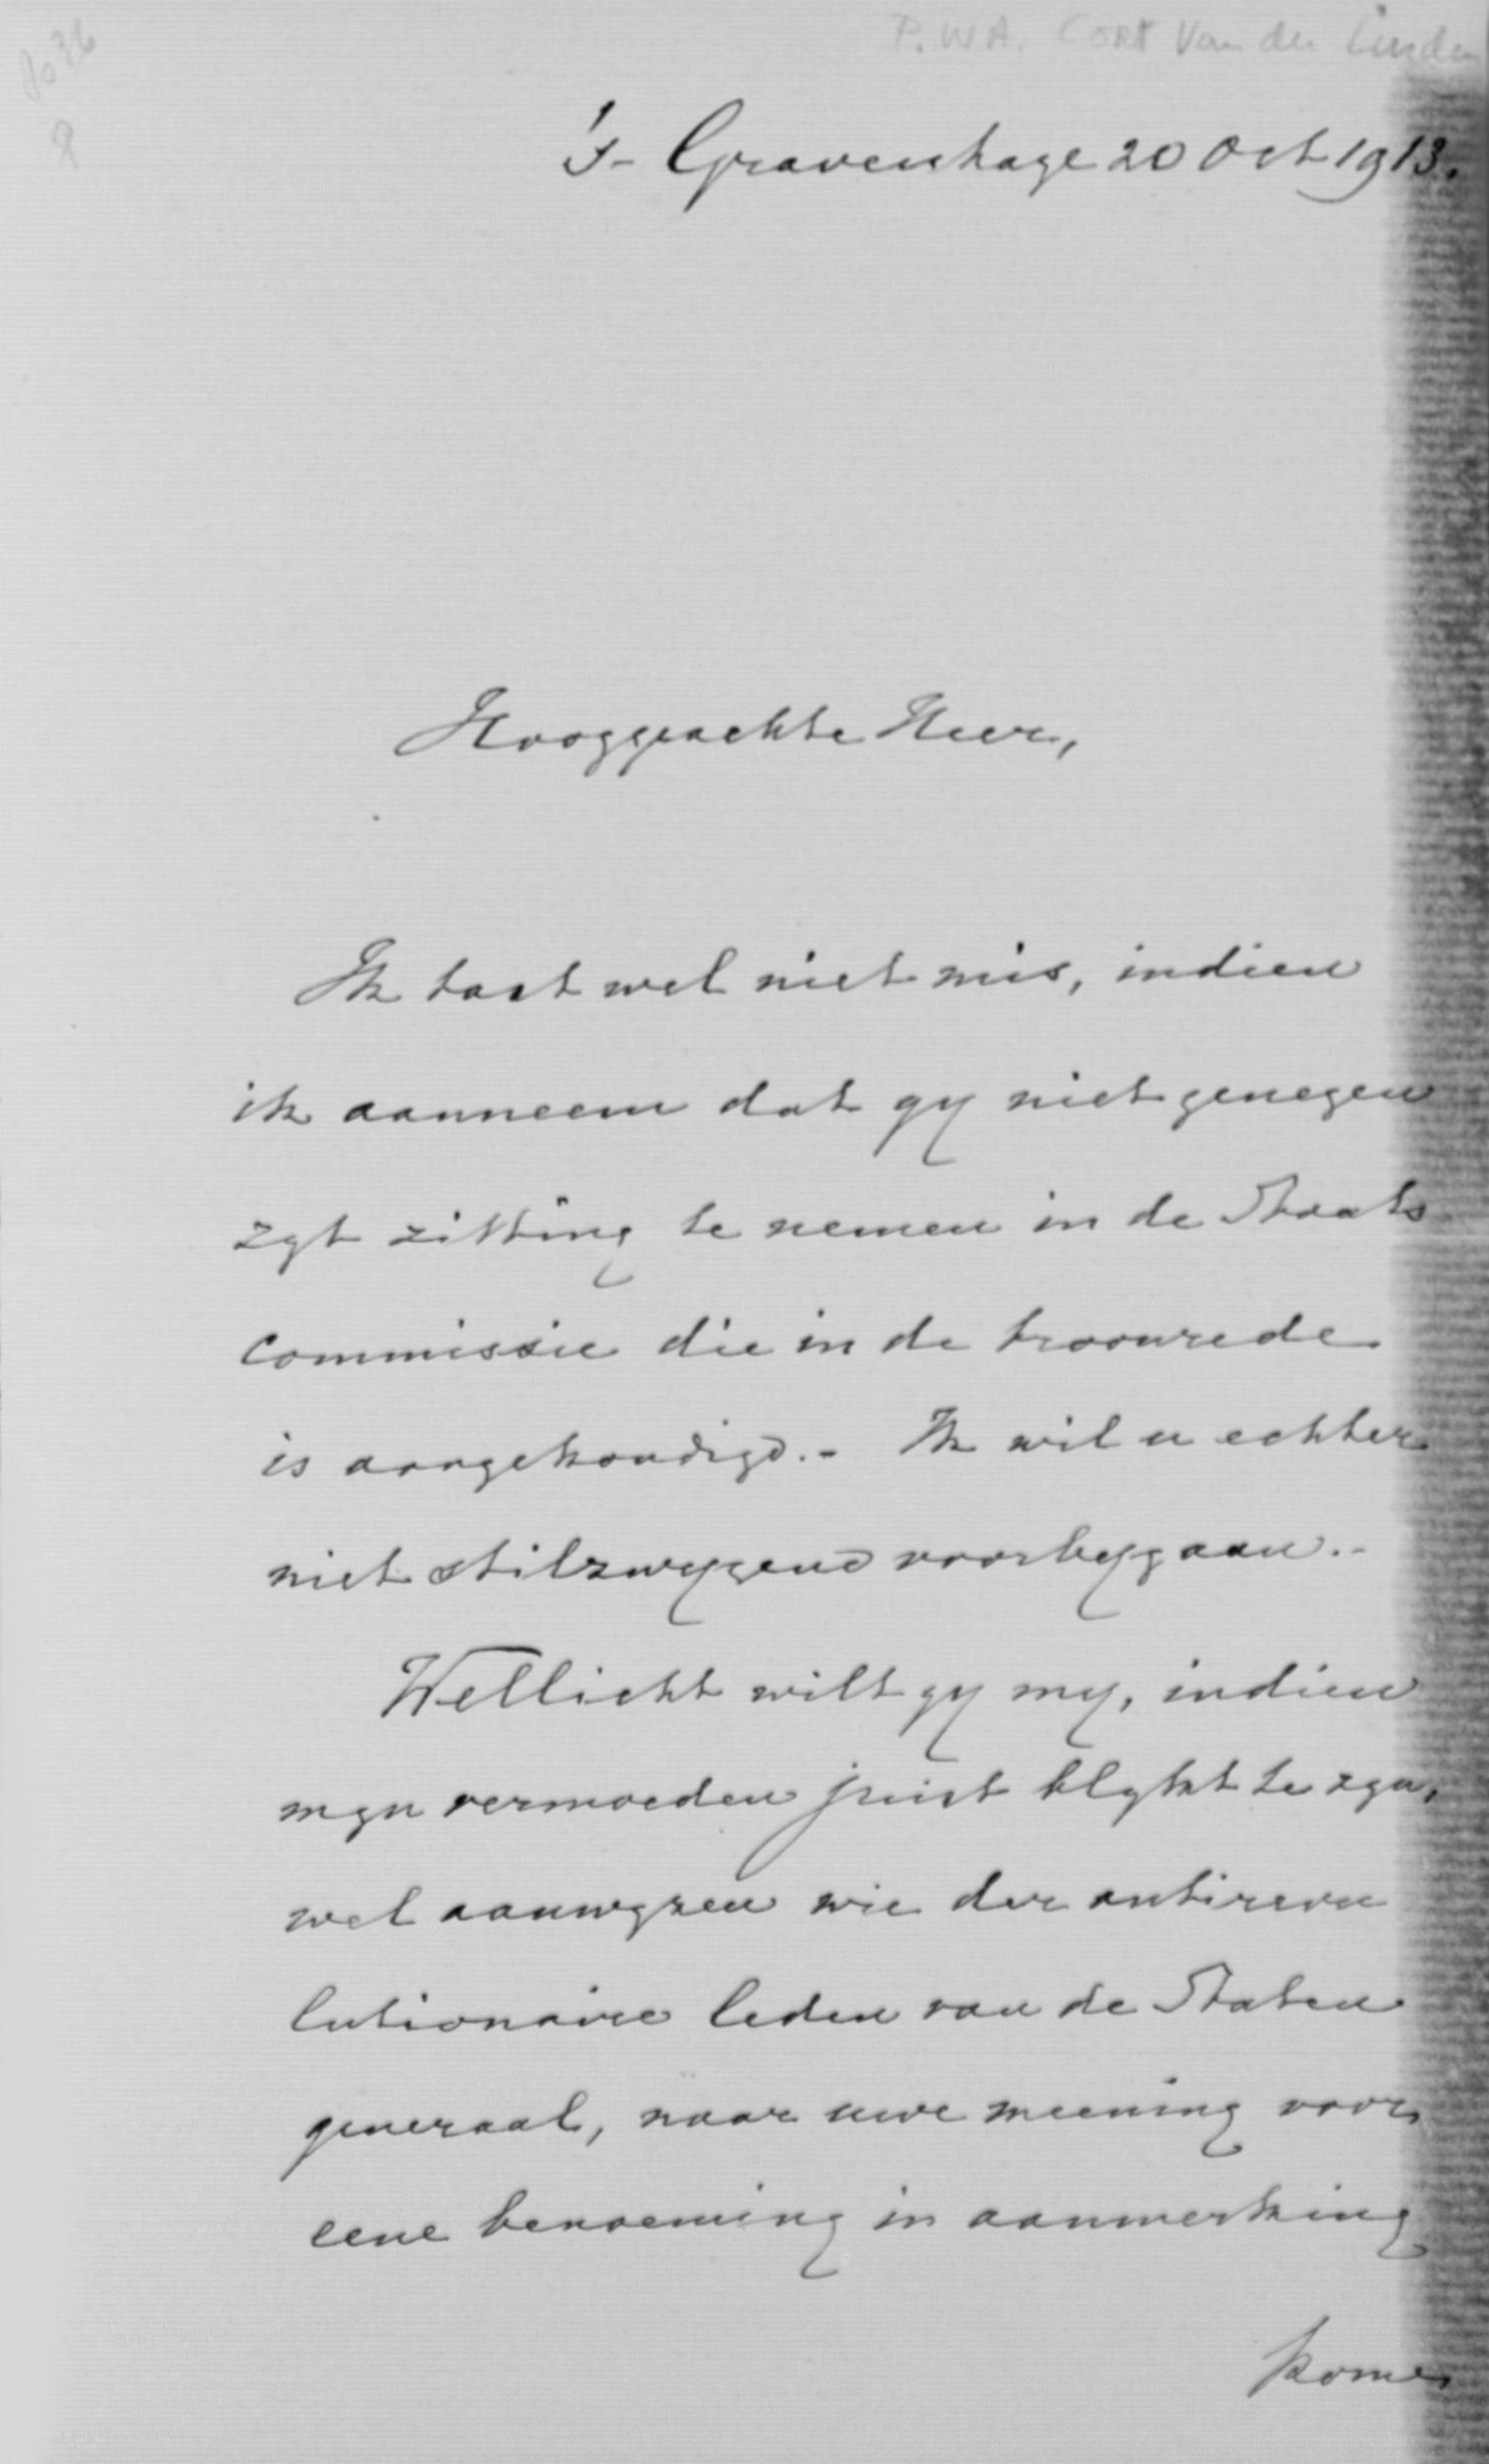 P.W.A. Cort Van der Linden
8036
8
's-Gravenhage 20 Oct 1913.
Hooggeachte Heer,
Ik tast wel niet mis, indien
ik aanneem dat gy niet genegen
zyt zitting te nemen in de Staats
commissie die in de troonrede
is aangekondigd.- Ik wil u echter
niet stilzwygend voorbygaan.-
Wellicht wilt gy my, indien
myn vermoeden juist blykt te zyn,
wel aanwyzen wie der antirevo
lutionaire leden van de Staten
generaal, naar uwe meening voor
eene benoeming in aanmerking
kome